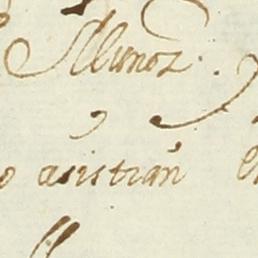 Munoz.
asistian